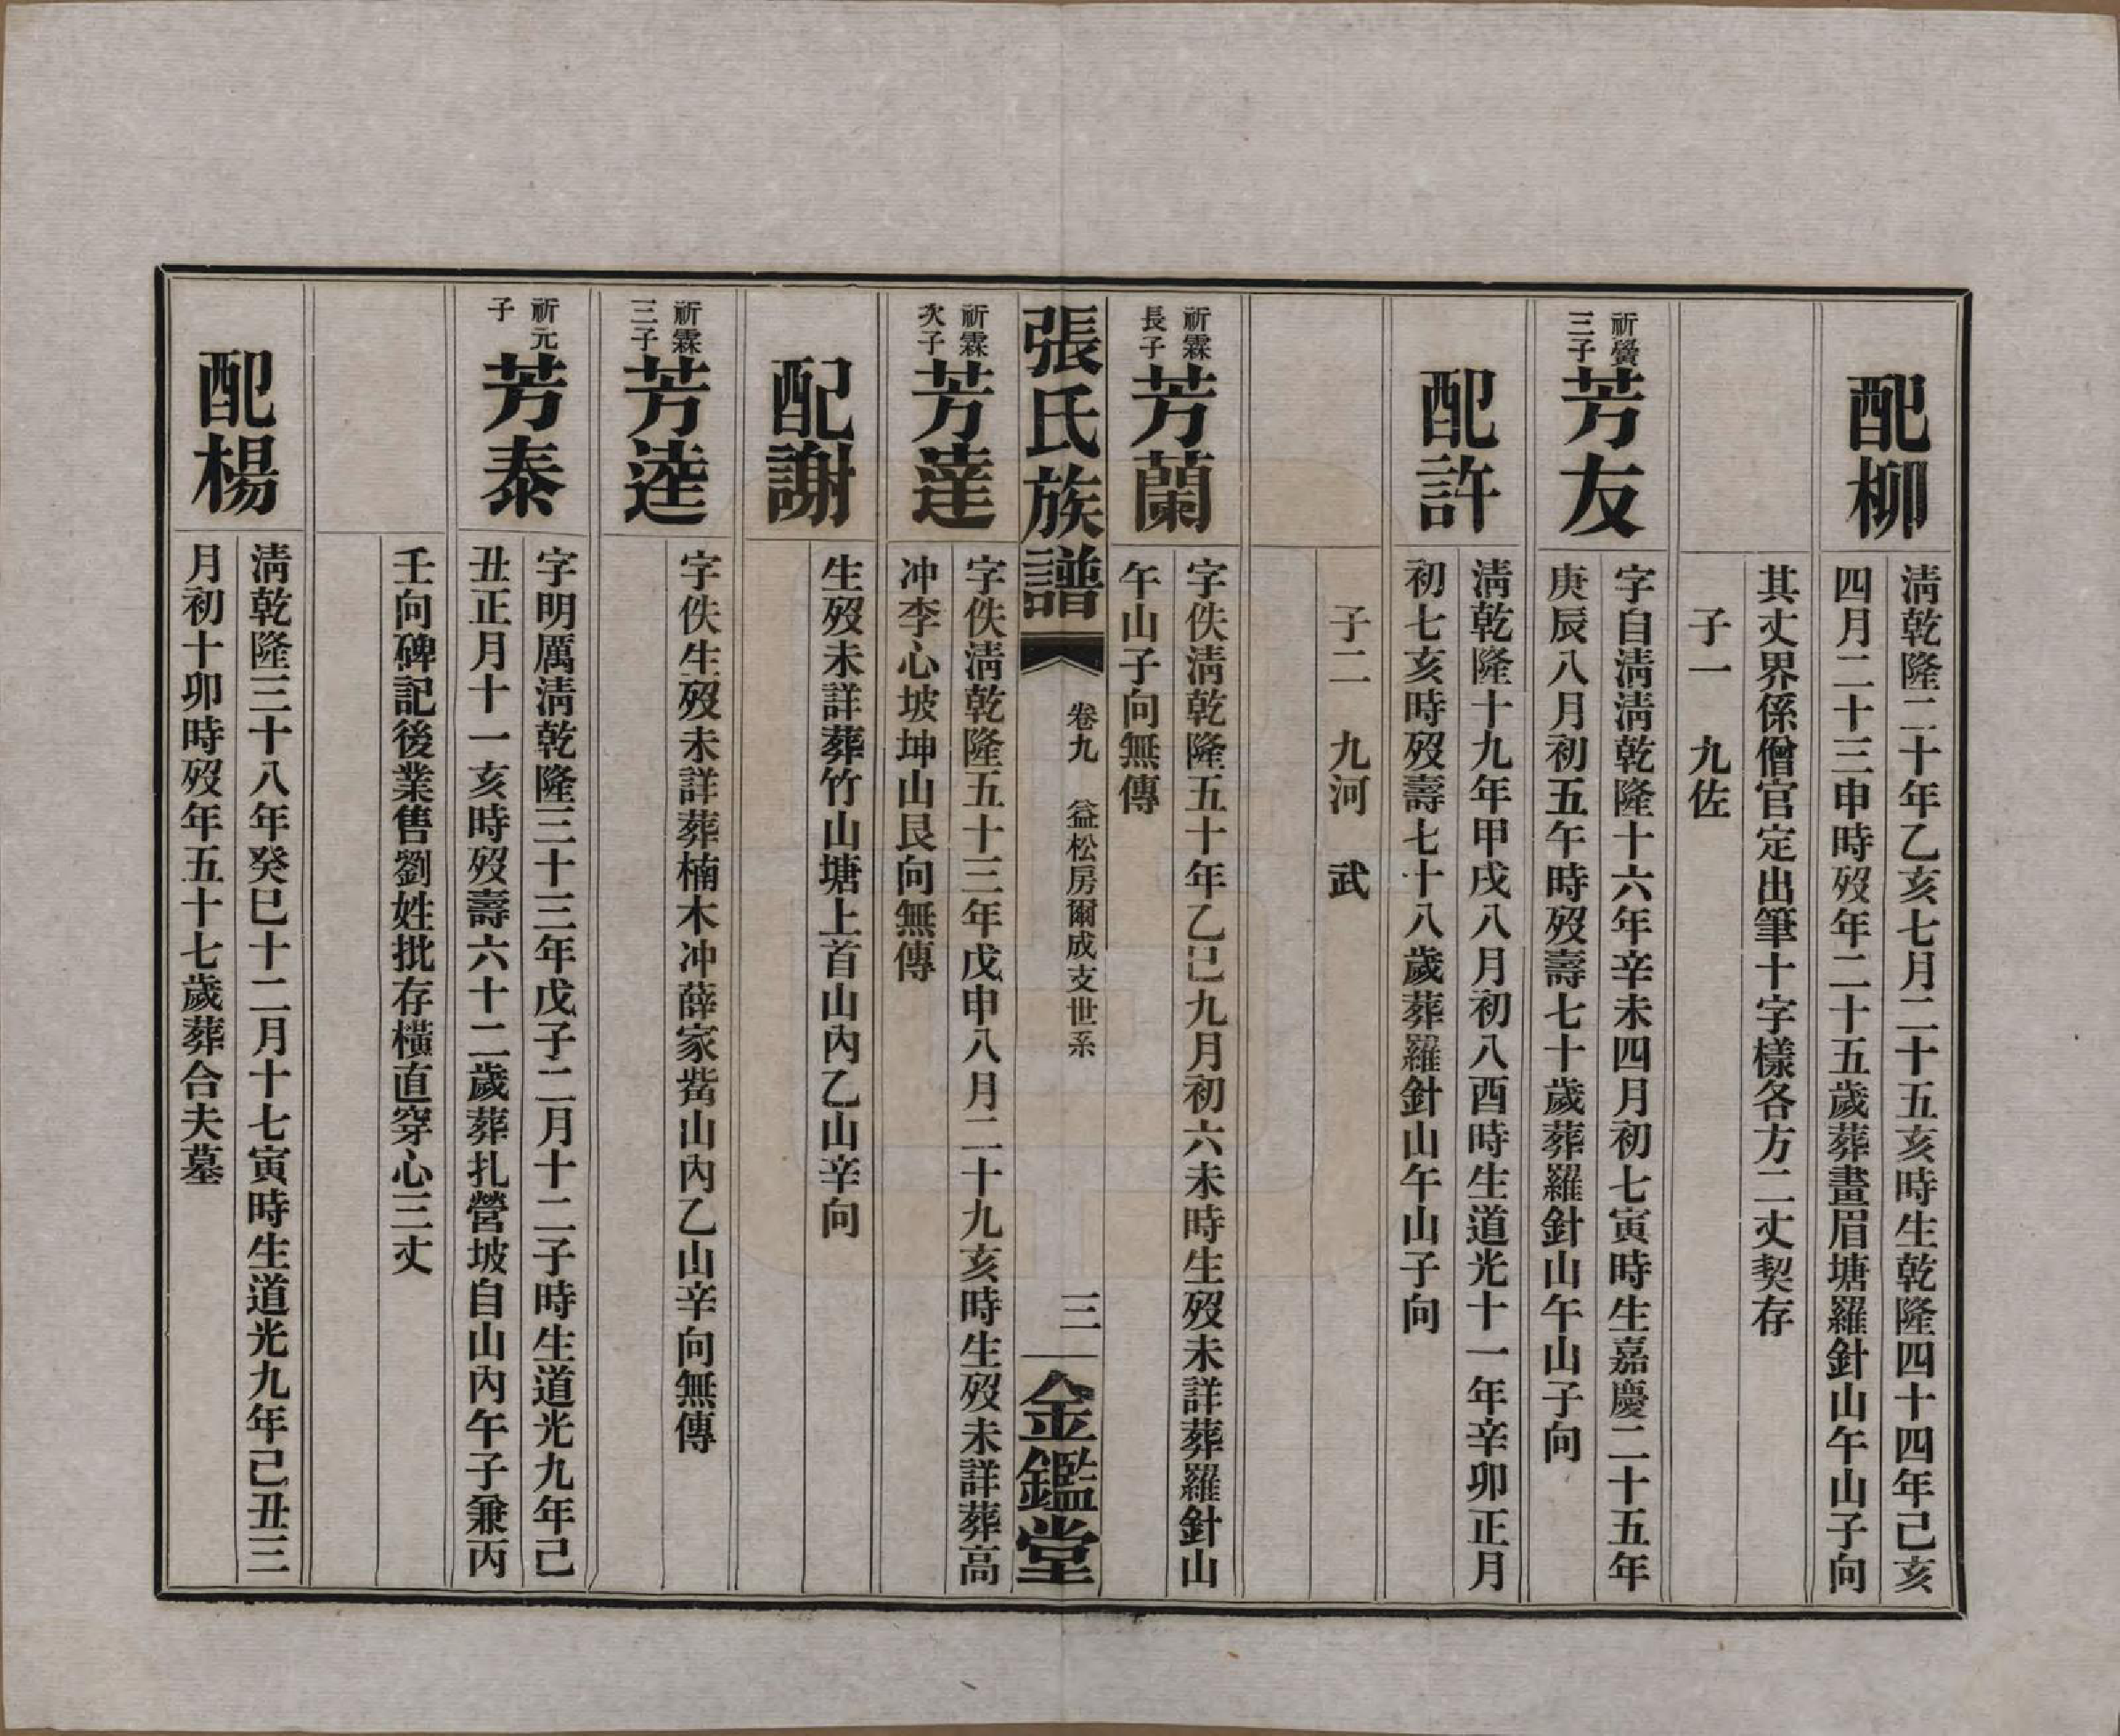 配柳
清乾隆二十年乙亥七月二十五亥時生乾隆四十四年己亥
四月二十三申時歿年二十五歲葬畫眉塘羅針山午山子向
其丈界係僧官定出筆十字樣各方二丈契存
子一　九佐
祈黌
三子
芳友
字自清清乾隆十六年辛未四月初七寅時生嘉慶二十五年
庚辰八月初五午時歿壽七十歲葬羅針山午山子向
配許
清乾隆十九年甲戌八月初八酉時生道光十一年辛卯正月
初七亥時歿壽七十八歲葬羅針山午山子向
子二　九河　武
祈霖
長子
芳蘭
字佚清乾隆五十年乙巳九月初六未時生歿未詳葬羅針山
午山子向無傳
張氏族譜
卷九　益松房爾成支世系
三
金鑑堂
祈霖
次子
芳達
字佚清乾隆五十三年戊申八月二十九亥時生歿未詳葬高
冲李心坡坤山艮向無傳
配謝
生歿未詳葬竹山塘上首山內乙山辛向
祈霖
三子
芳逵
字佚生歿未詳葬楠木冲薛家嵴山內乙山辛向無傳
祈元
子
芳泰
字明厲清乾隆三十三年戊子二月十二子時生道光九年己
丑正月十一亥時歿壽六十二歲葬扎營坡自山內午子兼丙
壬向碑記後業售劉姓批存橫直穿心三丈
配楊
清乾隆三十八年癸巳十二月十七寅時生道光九年己丑三
月初十卯時歿年五十七歲葬合夫墓